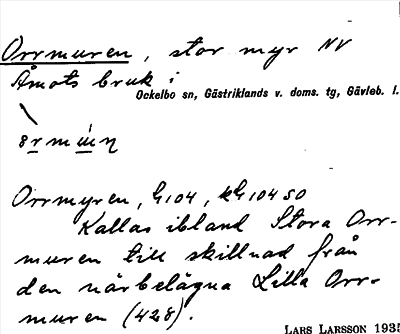 Orrmuren, stor myr NV
Åmots bruk i
Ockelbo sn, Gästriklands v. doms. tg, Gävleb. l.
Orrmyren, G104, kG104 SO
Kallas ibland Stora Orr-
muren till skillnad från
den närbelägna Lilla Orr-
muren (428).
LARS LARSSON 1935